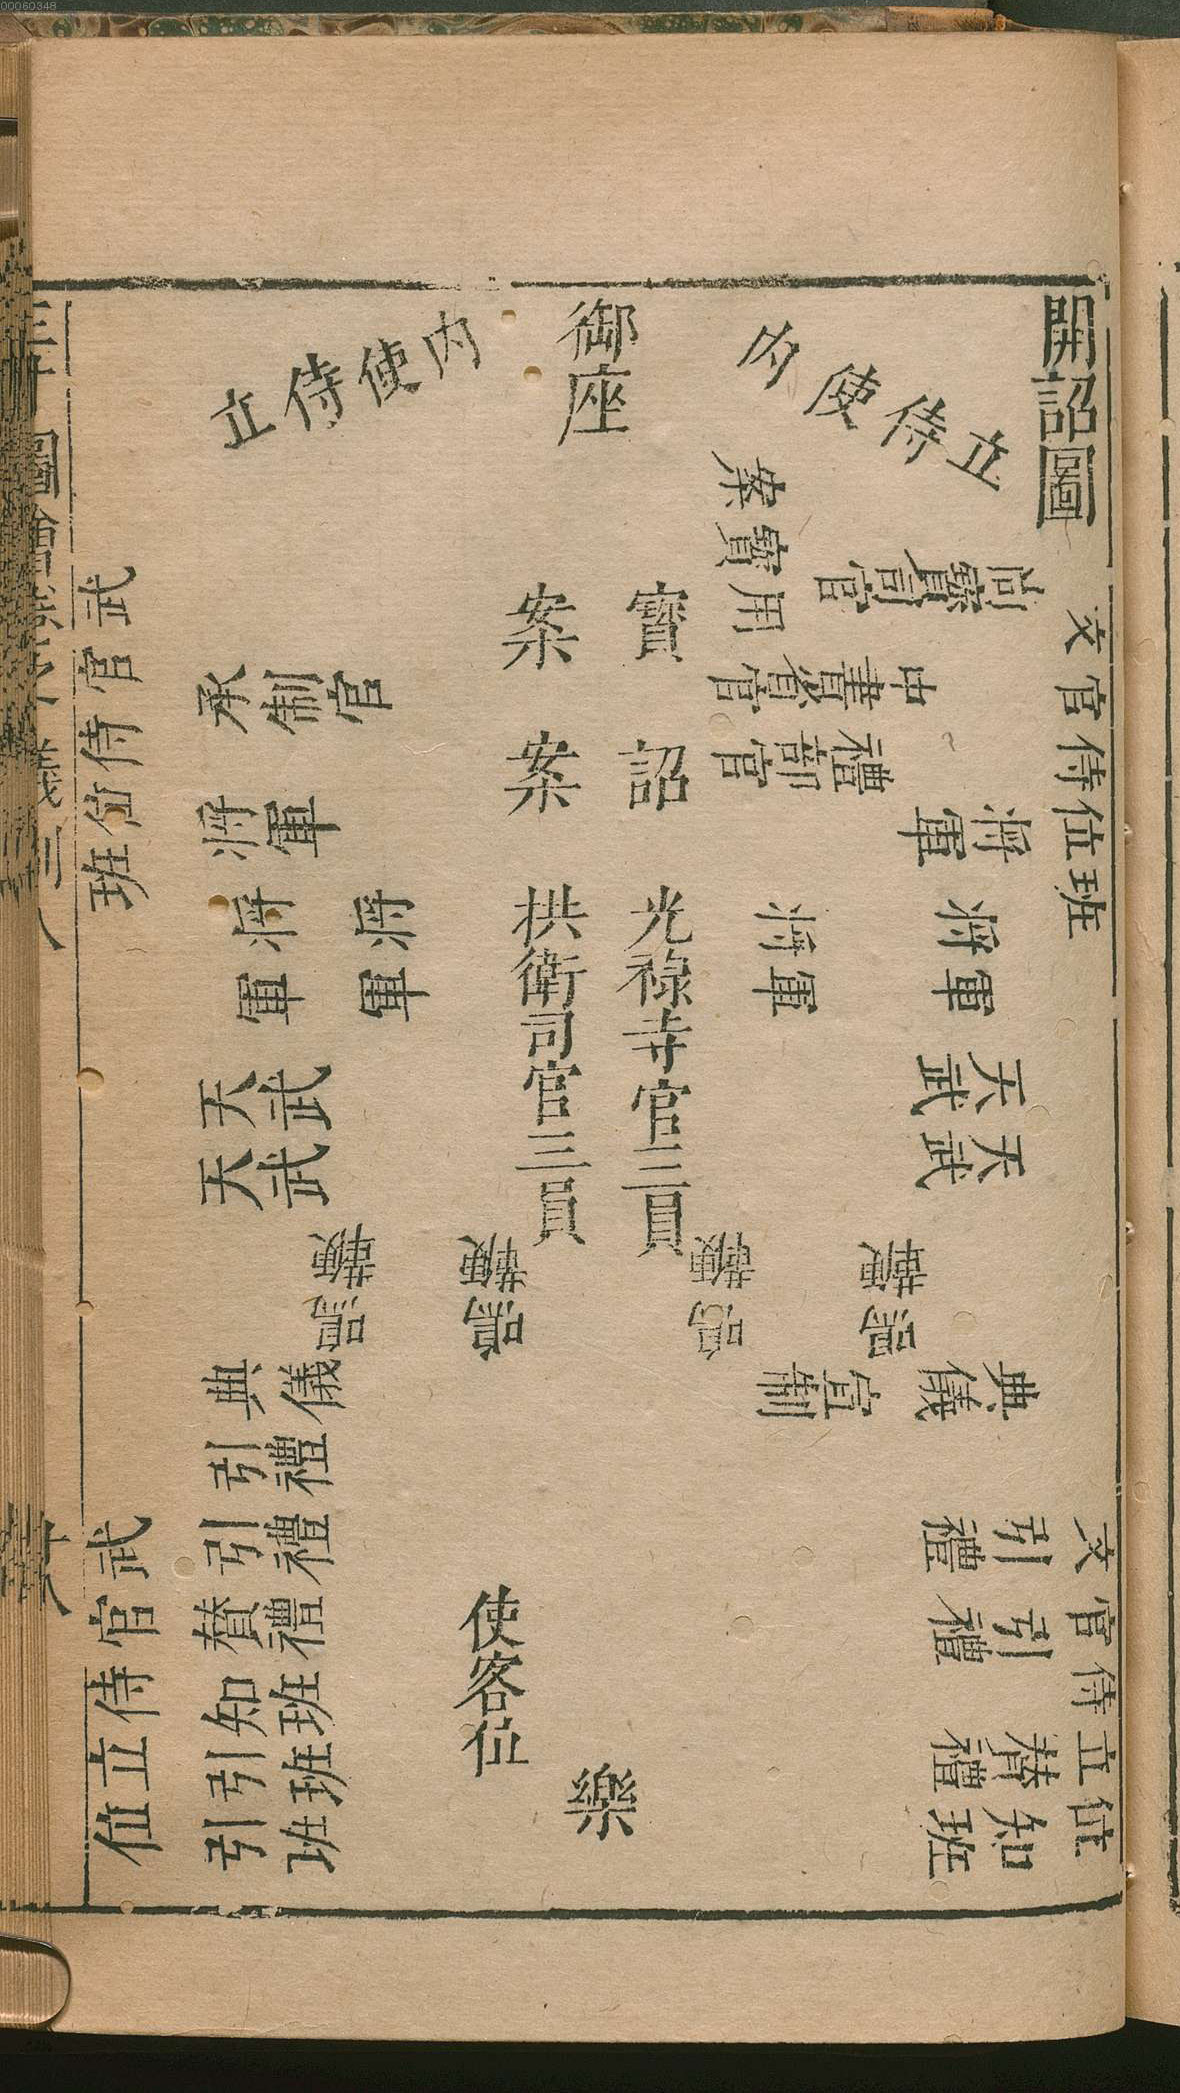 00060348
開詔圖
文官侍位班
文官侍立位
內使侍立
尚寶司官
將軍
將軍
天武
天武
典儀
引禮
引禮
贊禮
知班
用寶案
中書省官
禮部官
將軍
鳴鞭
宣制
鳴鞭
御座
寶案
詔案
光祿寺官三員
拱衛司官三員
樂
使客位
鳴鞭
鳴鞭
內使侍立
承制官
將軍
將軍
將軍
天武
天武
典儀
引禮
引禮
贊禮
知班
引班
引班
武官侍位班
武官侍立位